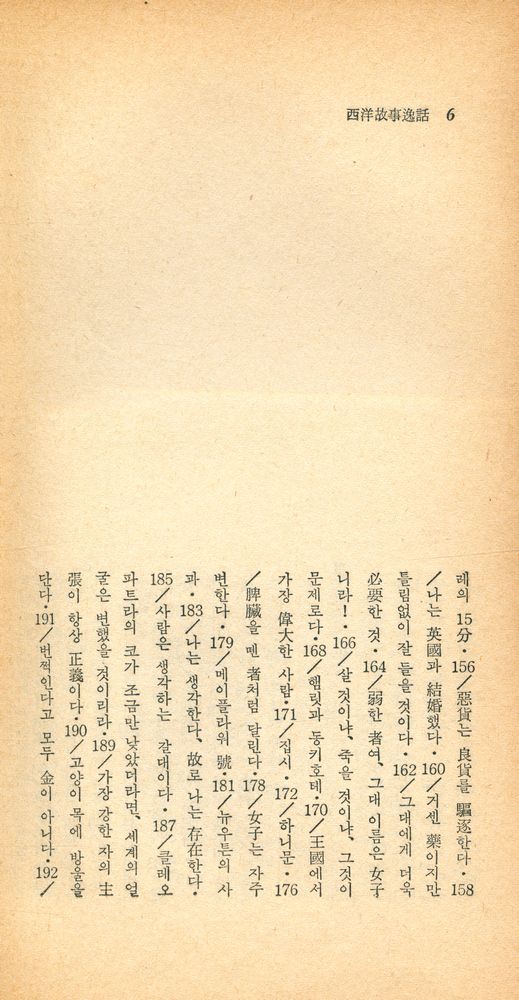 西洋故事逸話 6
레의 15分·156/惡貨는 良貨를 驅逐한다·158
/나는 英國과 結婚했다·160/거센 藥이지만
틀림없이 잘 들을 것이다·162/그대에게 더욱
必要한 것·164/弱한 者여, 그대 이름은 女子
니라!·166/살 것이냐, 죽을 것이냐, 그것이
문제로다·168/햄릿과 동키호테·170/王國에서
가장 偉大한 사람·171/집시·172/하니문·176
/脾臟을 뗀 者처럼 달린다·178/女子는 자주
변한다·179/메이플라워 號·181/뉴우튼의 사
과·183/나는 생각한다, 故로 나는 存在한다·
185/사람은 생각하는 갈대이다·187/클레오
파트라의 코가 조금만 낮았더라면, 세계의 얼
굴은 변했을 것이리라·189/가장 강한 자의 主
張이 항상 正義이다·190/고양이 목에 방울을
단다·191/번쩍인다고 모두 金이 아니다·192/